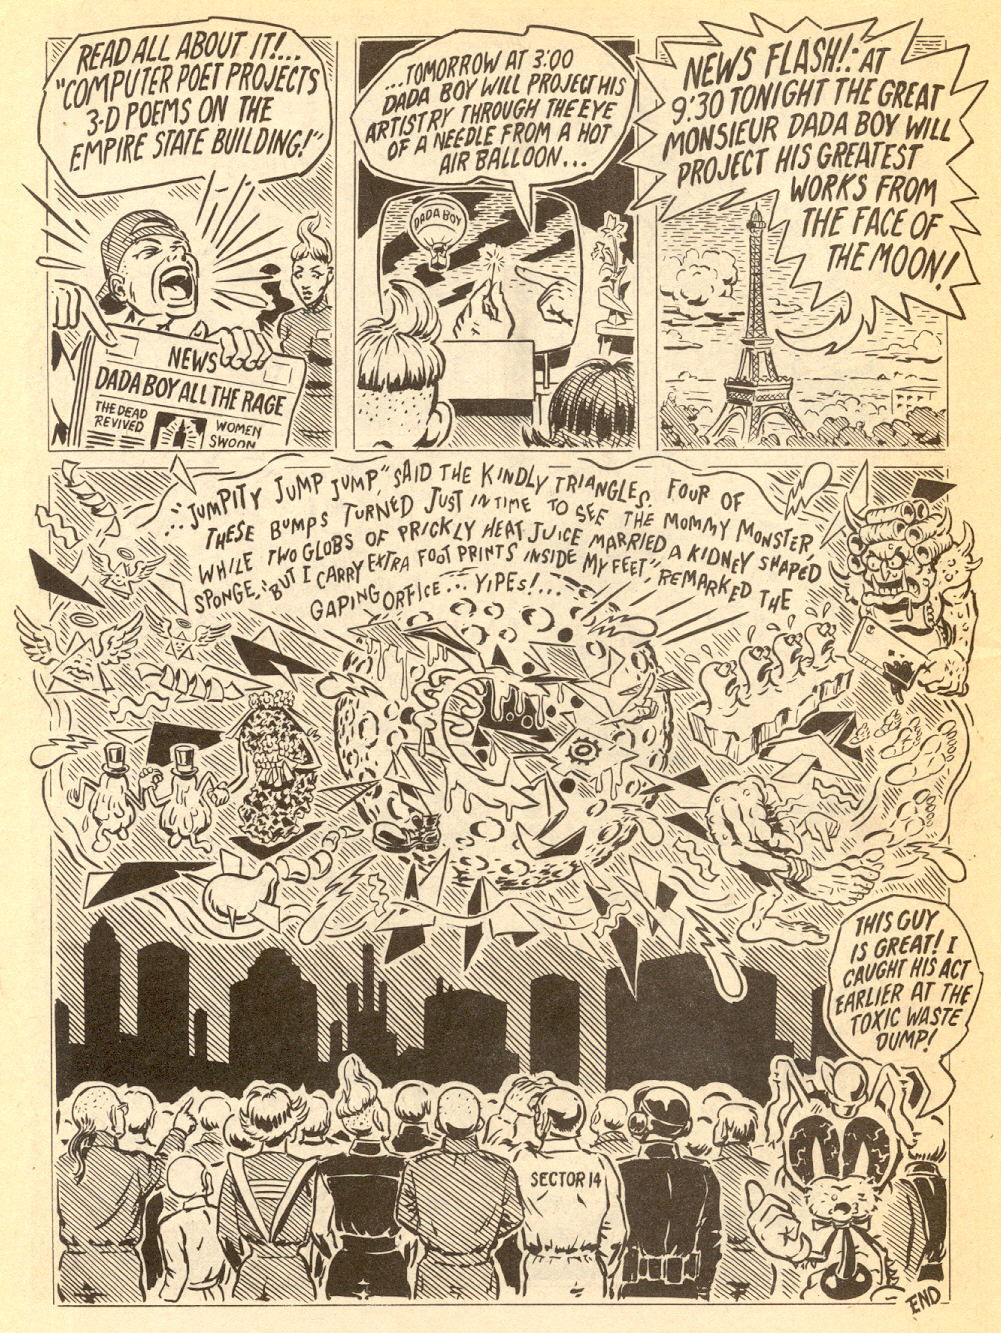 READ ALL ABOUT IT!...
"COMPUTER POET PROJECTS
3-D POEMS ON THE
EMPIRE STATE BUILDING!"
NEWS
DADA BOY ALL THE RAGE
THE DEAD
REVIVED
WOMEN
SWOON
...TOMORROW AT 3:00
DADA BOY WILL PROJECT HIS
ARTISTRY THROUGH THE EYE
OF A NEEDLE FROM A HOT
AIR BALLOON...
DADA BOY
NEWS FLASH!: AT
9:30 TONIGHT THE GREAT
MONSIEUR DADA BOY WILL
PROJECT HIS GREATEST
WORKS FROM
THE FACE OF
THE MOON!
..."JUMPITY JUMP JUMP," SAID THE KINDLY TRIANGLES. FOUR OF
THESE BUMPS TURNED JUST IN TIME TO SEE THE MOMMY MONSTER,
WHILE TWO GLOBS OF PRICKLY HEAT JUICE MARRIED A KIDNEY SHAPED
SPONGE, "BUT I CARRY EXTRA FOOT PRINTS INSIDE MY FEET", REMARKED THE
GAPING ORFICE... YIPES!...
THIS GUY
IS GREAT! I
CAUGHT HIS ACT
EARLIER AT THE
TOXIC WASTE
DUMP!
SECTOR 14
END